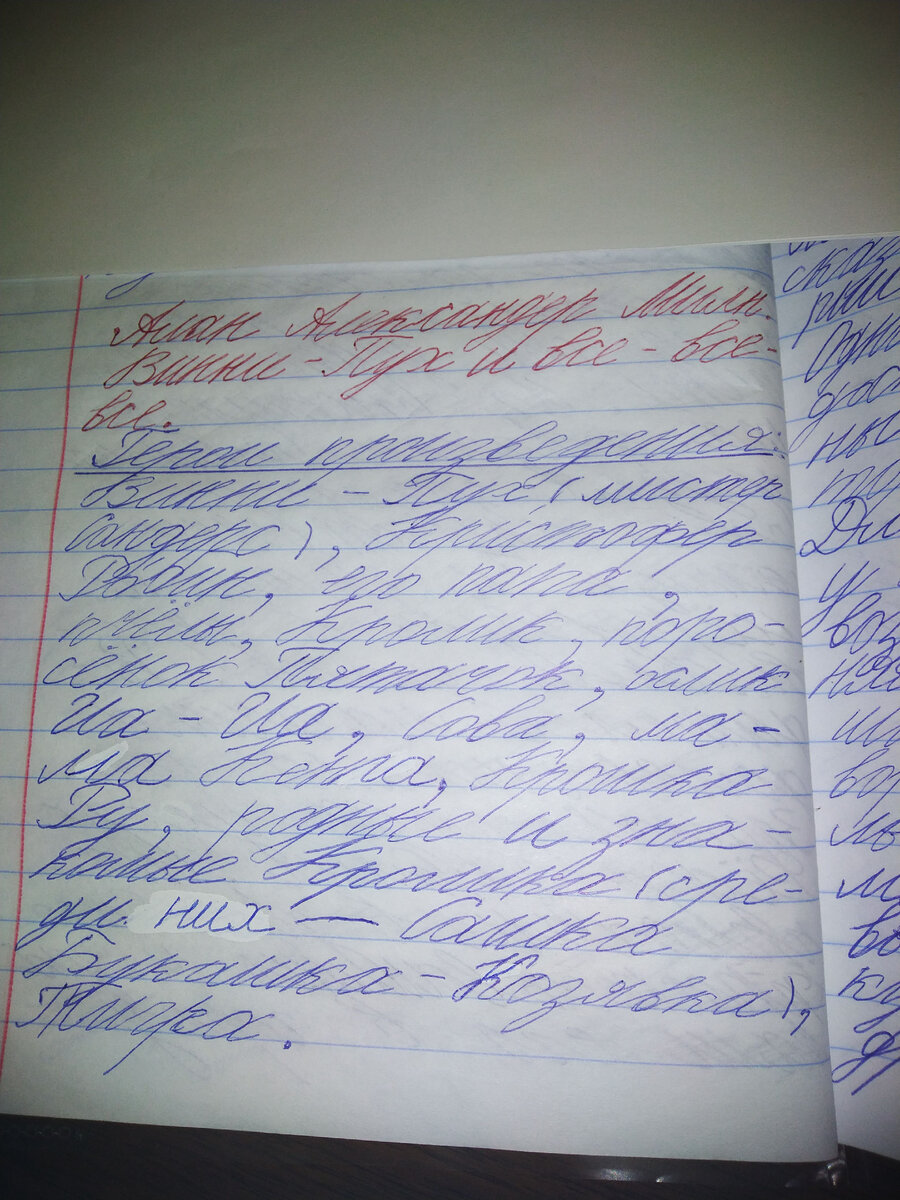 Алан Александер Милн.
Винни-Пух и все-все-
все.
Герои произведения:
Винни-Пух (мистер
Сандерс), Кристофер
Робин, его папа,
пчёлы, Кролик, поро-
сёнок Пятачок, ослик
Иа-Иа, Сова, ма-
ма Кенга, Крошка
Ру, родные и зна-
комые Кролика (сре-
ди них — Сашка
Букашка-Козявка),
Тигра.